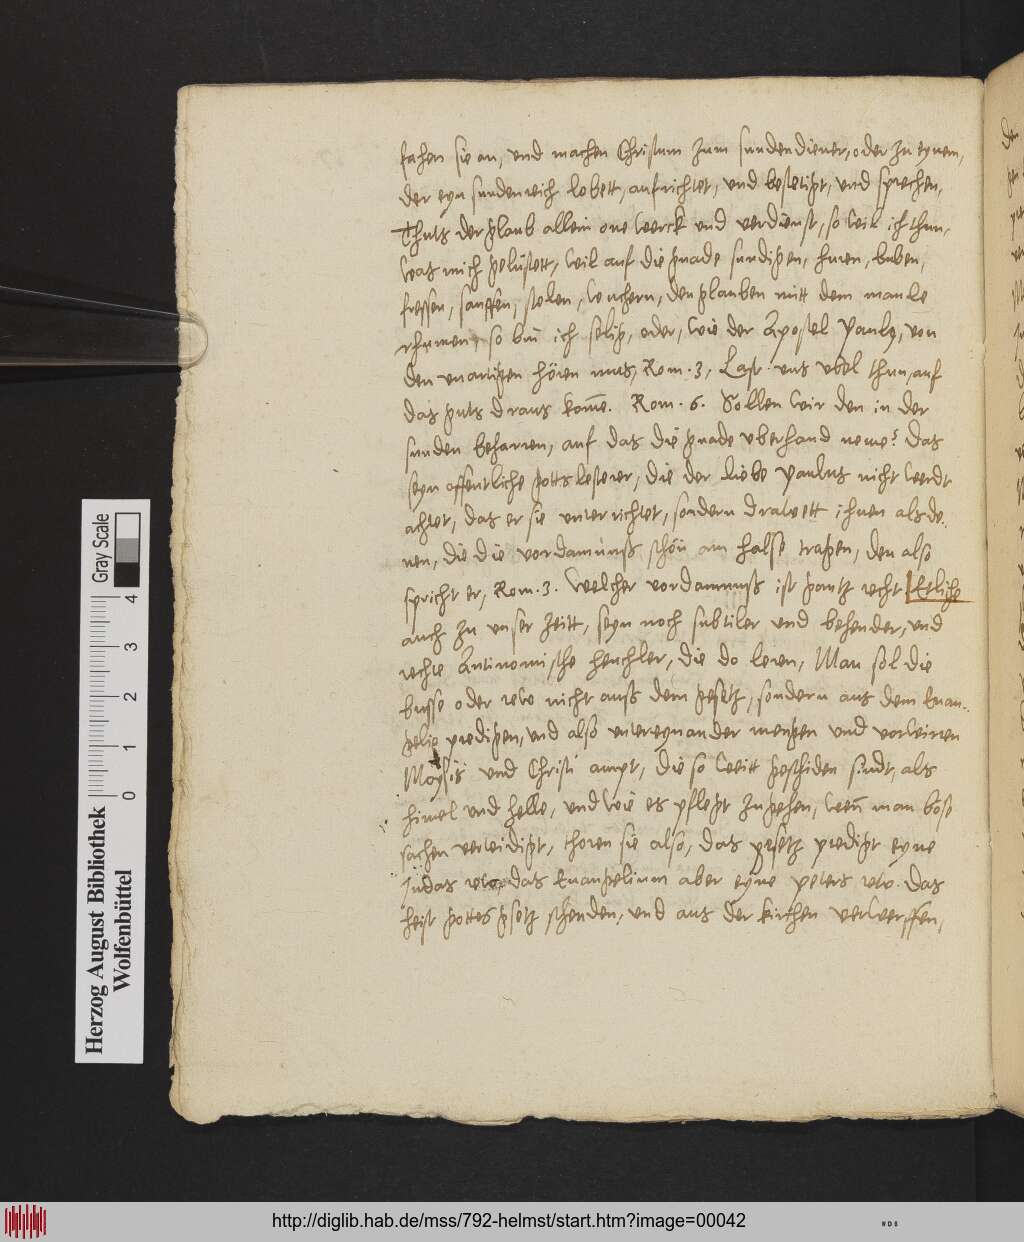 fahen sie an, und machen Christum zum sundendiener, oder zu eynem,
der eyn sundenreich lobett, aufrichtet, und bestetigt, und sprechen,
Thuts der glaub allein one werck und verdienst, so wil ich thun,
was mich gelüstett, wil auf die gnade sundigen, huren, buben,
fressen, sauffen, stelen, wuchern, den glauben mitt dem maule
rhumen, so bin ich selig, oder, wie der Apostel Paulus, von
den unartigen hören mus, Rom. 3, Last uns ubel thun, auf
das guts draus kom̄e. Rom. 6. Sollen wir den in der
sunden beharren, auf das die gnade uberhand neme? Das
seyn offentliche gottslesterer, die der liebe Paulus nicht werdt
achtet, das er sie unterrichtet, sondern drawett ihnen als de-
nen, die die vordamnuss schön am halse tragen, den also
spricht er, Rom. 3. Welcher vordamnuss ist gantz recht Etliche
auch zu unser zeitt, seyn noch subtiler und behender, und
rechte Antinomische heuchler, die do leren, Man sol die
busse oder rew nicht auss dem gesetz, sondern aus dem Euan-
gelio predigen, und also untereynander mengen und vorwirren
Moysis und Christi ampt, die so weitt geschiden sindt, als
himel und helle, und wie es pflegt zugehen, wen̄ man böse
sachen verteidigt, thoren sie also, das gesetz predigt eyne
Judas rew, das Euangelium aber eyne Peters rew. Das
heist gottes gsetz schenden, und aus der kirchen verwerffen,
Herzog August Bibliothek
Wolfenbüttel
Gray Scale
0 1 2 3 4
http://diglib.hab.de/mss/792-helmst/start.htm?image=00042